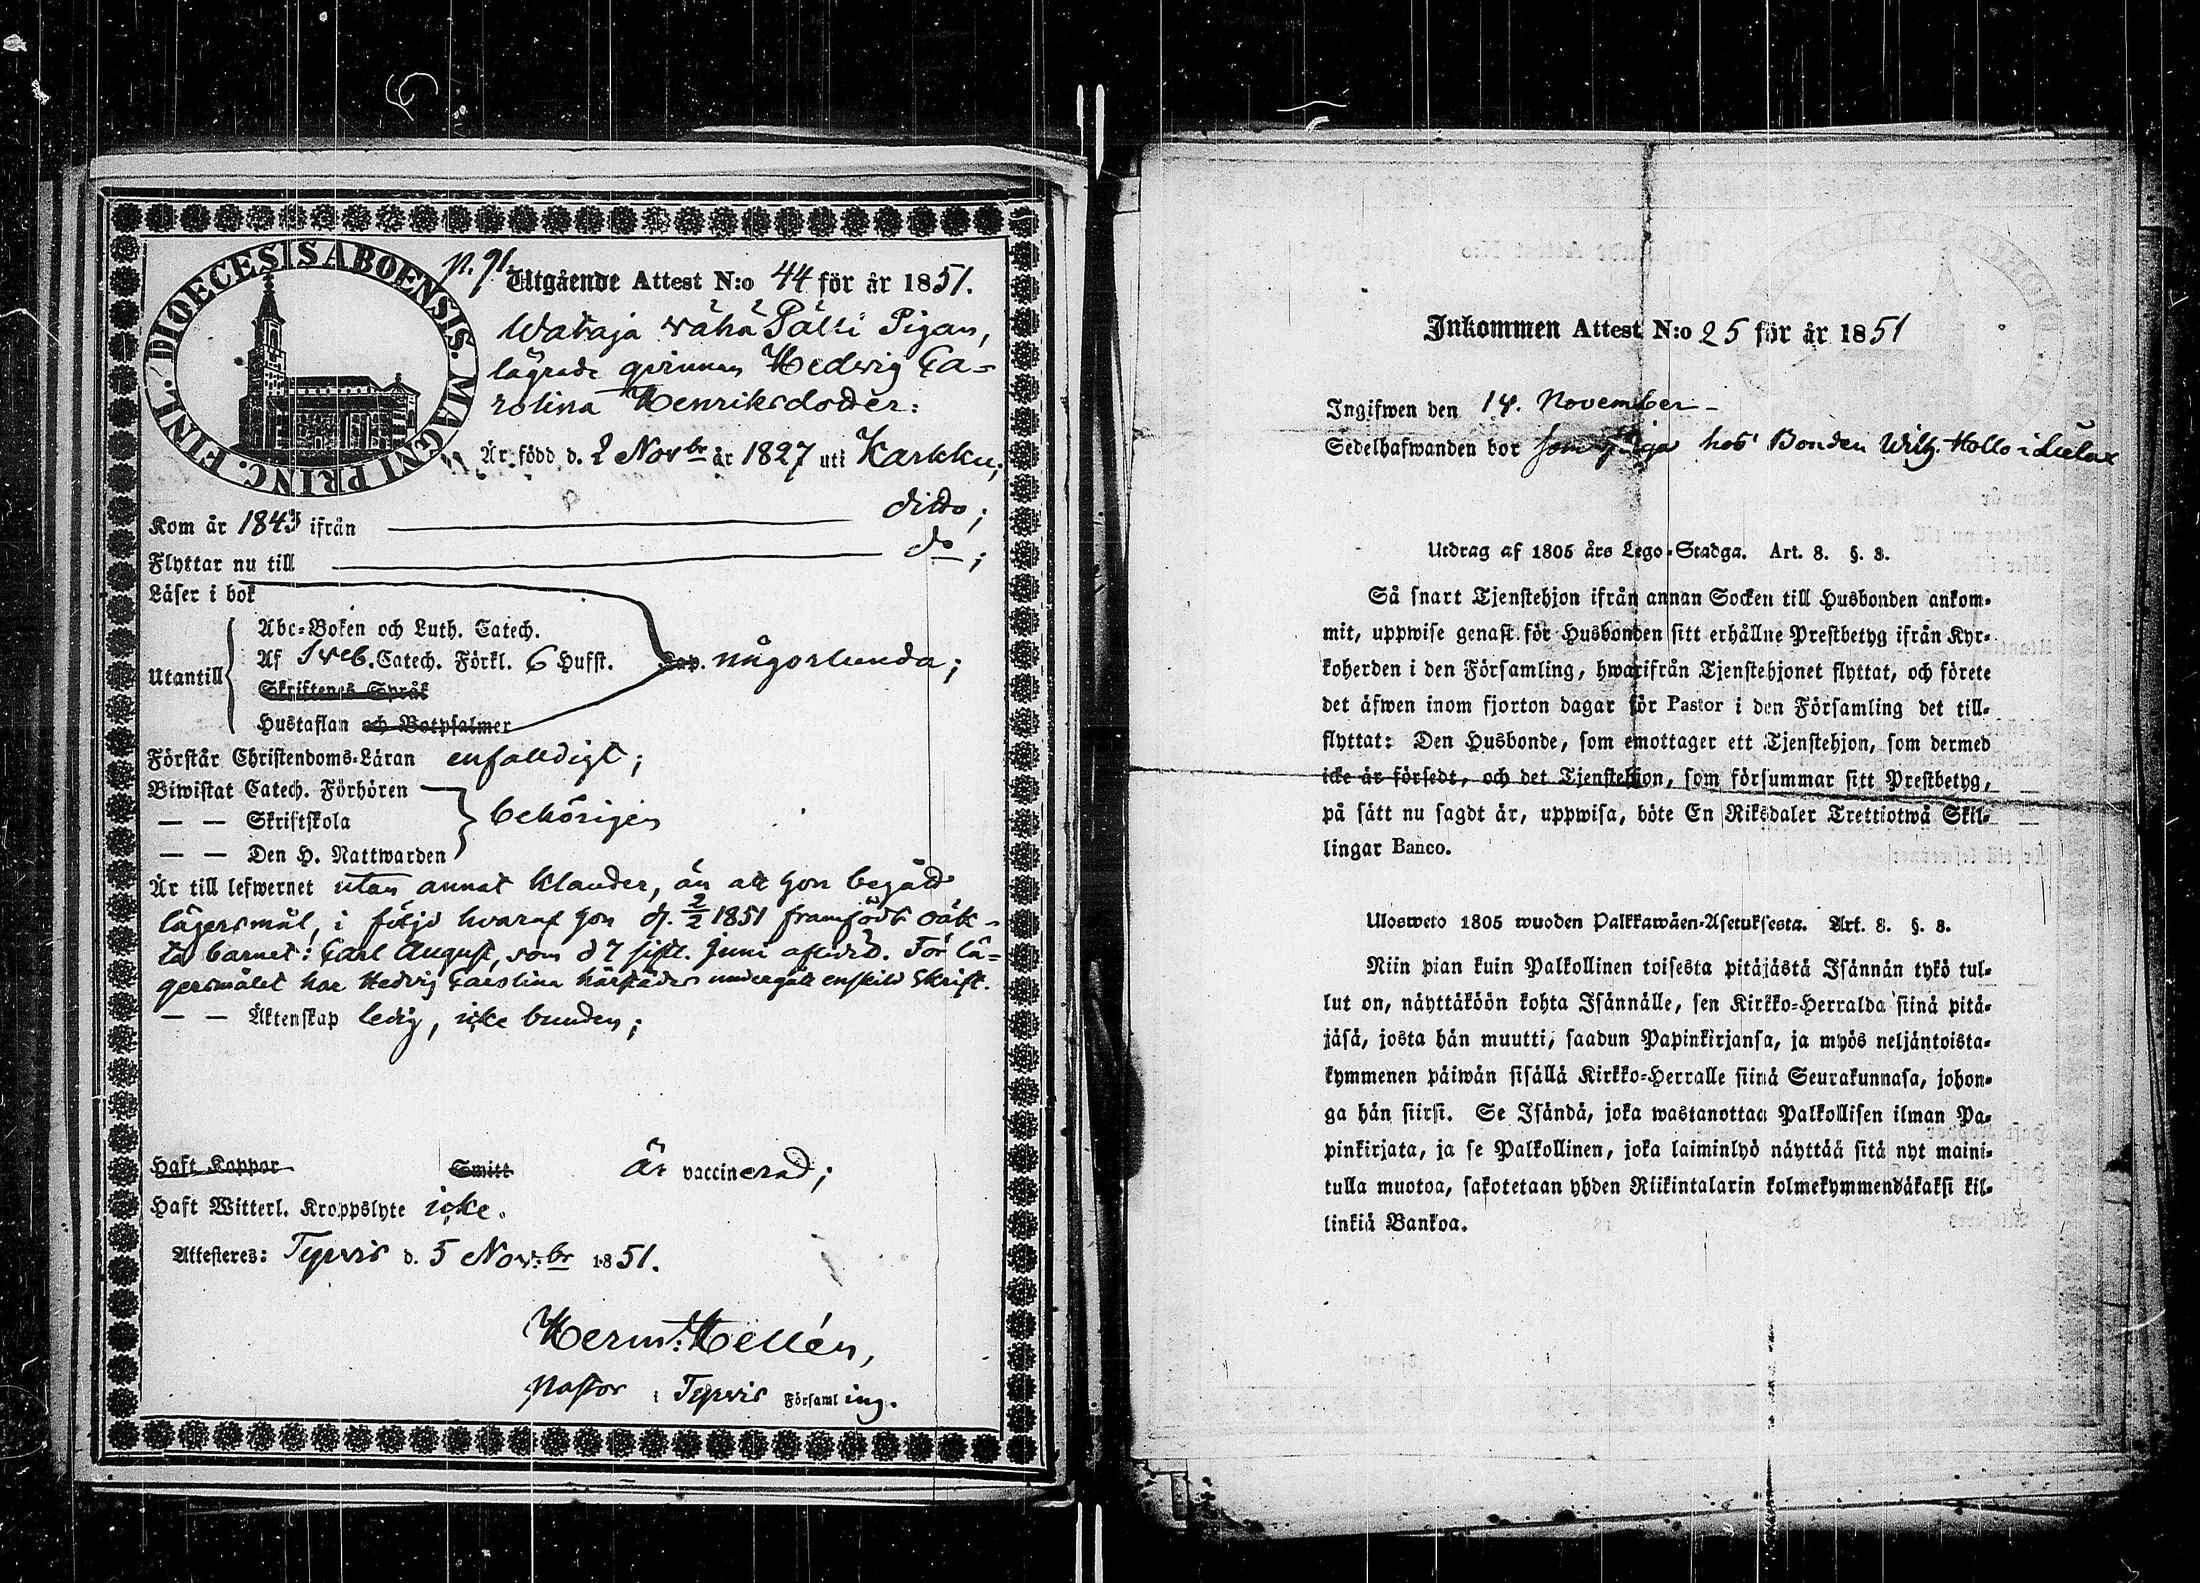 DIOECESIS ABOENSIS. MAGNI PRINC. FINL.
p. 91.
Utgående Attest N:o 44 för år 1851.
Wataja Wähä Pälli Pigan,
lägrade qvinnan Hedvig Ca-
rolina Henriksdotter:
Är född d. 2 Novbr år 1827 uti Karkku;
Kom år 1843 ifrån dito;
Flyttar nu till do;
Läser i bok
Utantill
Abc-Boken och Luth. Catech.
Af Sveb. Catech. Förkl. 6 Hufst. Cap. någorlunda;
Skriftens Språk
Hustaflan och Botpsalmer
Förstår Christendoms-Läran enfaldigt;
Biwistat Catech. Förhören
— — Skriftskola behörigen
— — Den H. Nattwarden
Är till lefwernet utan annat klander, än att hon begått
lägersmål, i följd hvaraf hon d. 2/2 1851 framfödt oäk-
ta barnet: Carl August, som d 7 sistl. Juni afled. För lä-
gersmålet har Hedvig Carolina härstädes undergått enskild Skrift.
— — Äktenskap ledig, icke bunden;
Haft Koppor Smitt är vaccinerad;
Haft Witterl. Kroppslyte icke.
Attesteres: Tyrvis d. 5 Nov:br 1851.
Herm: Hellén,
Pastor i Tyrvis Församling.
Inkommen Attest N:o 25 för år 1851
Ingifwen den 14. November -
Sedelhafwanden bor som piga hos Bonden Wilh. Hollo i
Utdrag af 1805 års Lego-Stadga. Art. 8. §. 8.
Så snart Tjenstehjon ifrån annan Socken till Husbonden ankom-
mit, uppwise genast för Husbonden sitt erhållne Prestbetyg ifrån Kyr-
koherden i den Församling, hwarifrån Tjenstehjonet flyttat, och förete
det äfwen inom fjorton dagar för Pastor i den Församling det till-
flyttat: Den Husbonde, som emottager ett Tjenstehjon, som dermed
icke är försedt, och det Tjenstehjon, som försummar sitt Prestbetyg,
på sätt nu sagdt är, uppwisa, böte En Riksdaler Trettiotwå Skil-
lingar Banco.
Ulosweto 1805 wuoden Palkkawäen-Asetuksesta. Art. 8. §. 8.
Niin pian kuin Palkollinen toisesta pitäjästä Isännän tykö tul-
lut on, näyttäköön kohta Isännälle, sen Kirkko-Herralda siinä pitä-
jäsä, josta hän muutti, saadun Papinkirjansa, ja myös neljäntoista-
kymmenen päiwän sisällä Kirkko-Herralle siinä Seurakunnasa, johon-
ga hän siirsi. Se Isändä, joka wastanottaa Palkollisen ilman Pa-
pinkirjata, ja se Palkollinen, joka laiminlyö näyttää sitä nyt maini-
tulla muotoa, sakotetaan yhden Riikintalarin kolmekymmendäkaksi kil-
linkiä Bankoa.